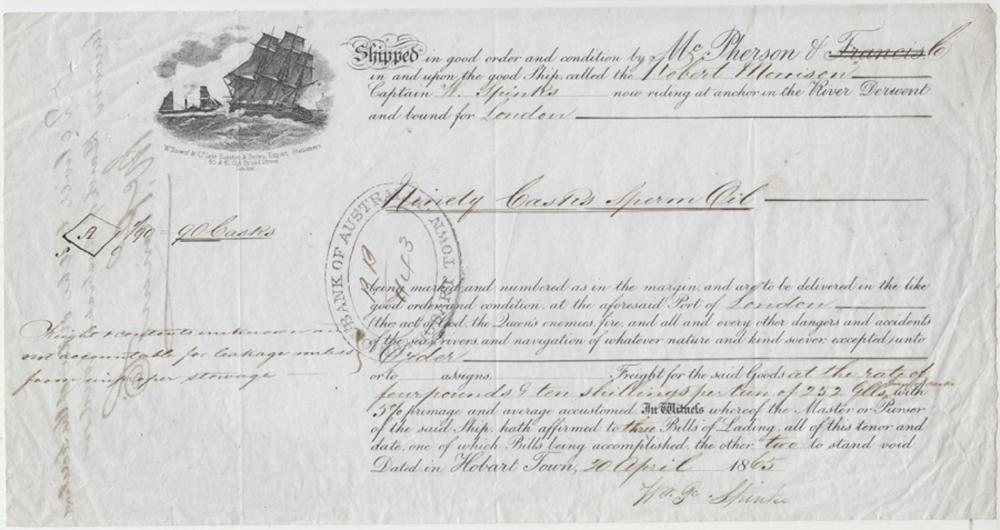 Shipped in good order and condition by McPherson & Francis Co
in and upon the good Ship, called the Robert Morrison
Captain W. Spinks now riding at anchor in the River Derwent
and bound for London
London
Ninety Casks Sperm Oil
A 1/90 90 Casks
BANK OF AUSTRA
TOWN
being marked and numbered as in the margin, and are to be delivered in the like
good order and condition, at the aforesaid Port of London
(the act of God, the Queen's enemies, fire, and all and every other dangers and accidents
of the seas, rivers and navigation of whatever nature and kind soever, excepted) unto
Order
or to assigns. Freight for the said Goods at the rate of
four pounds & ten shillings per tun of 252 Glls with
5 % primage and average accustomed. In Witness whereof the Master or Purser
of the said Ship, hath affirmed to three Bills of Lading, all of this tenor and
date, one of which Bills being accomplished, the other two to stand void.
Dated in Hobart Town, 20 April 1865
Wm. Spinks
Weight & contents unknown and
not accountable for leakage unless
from improper stowage